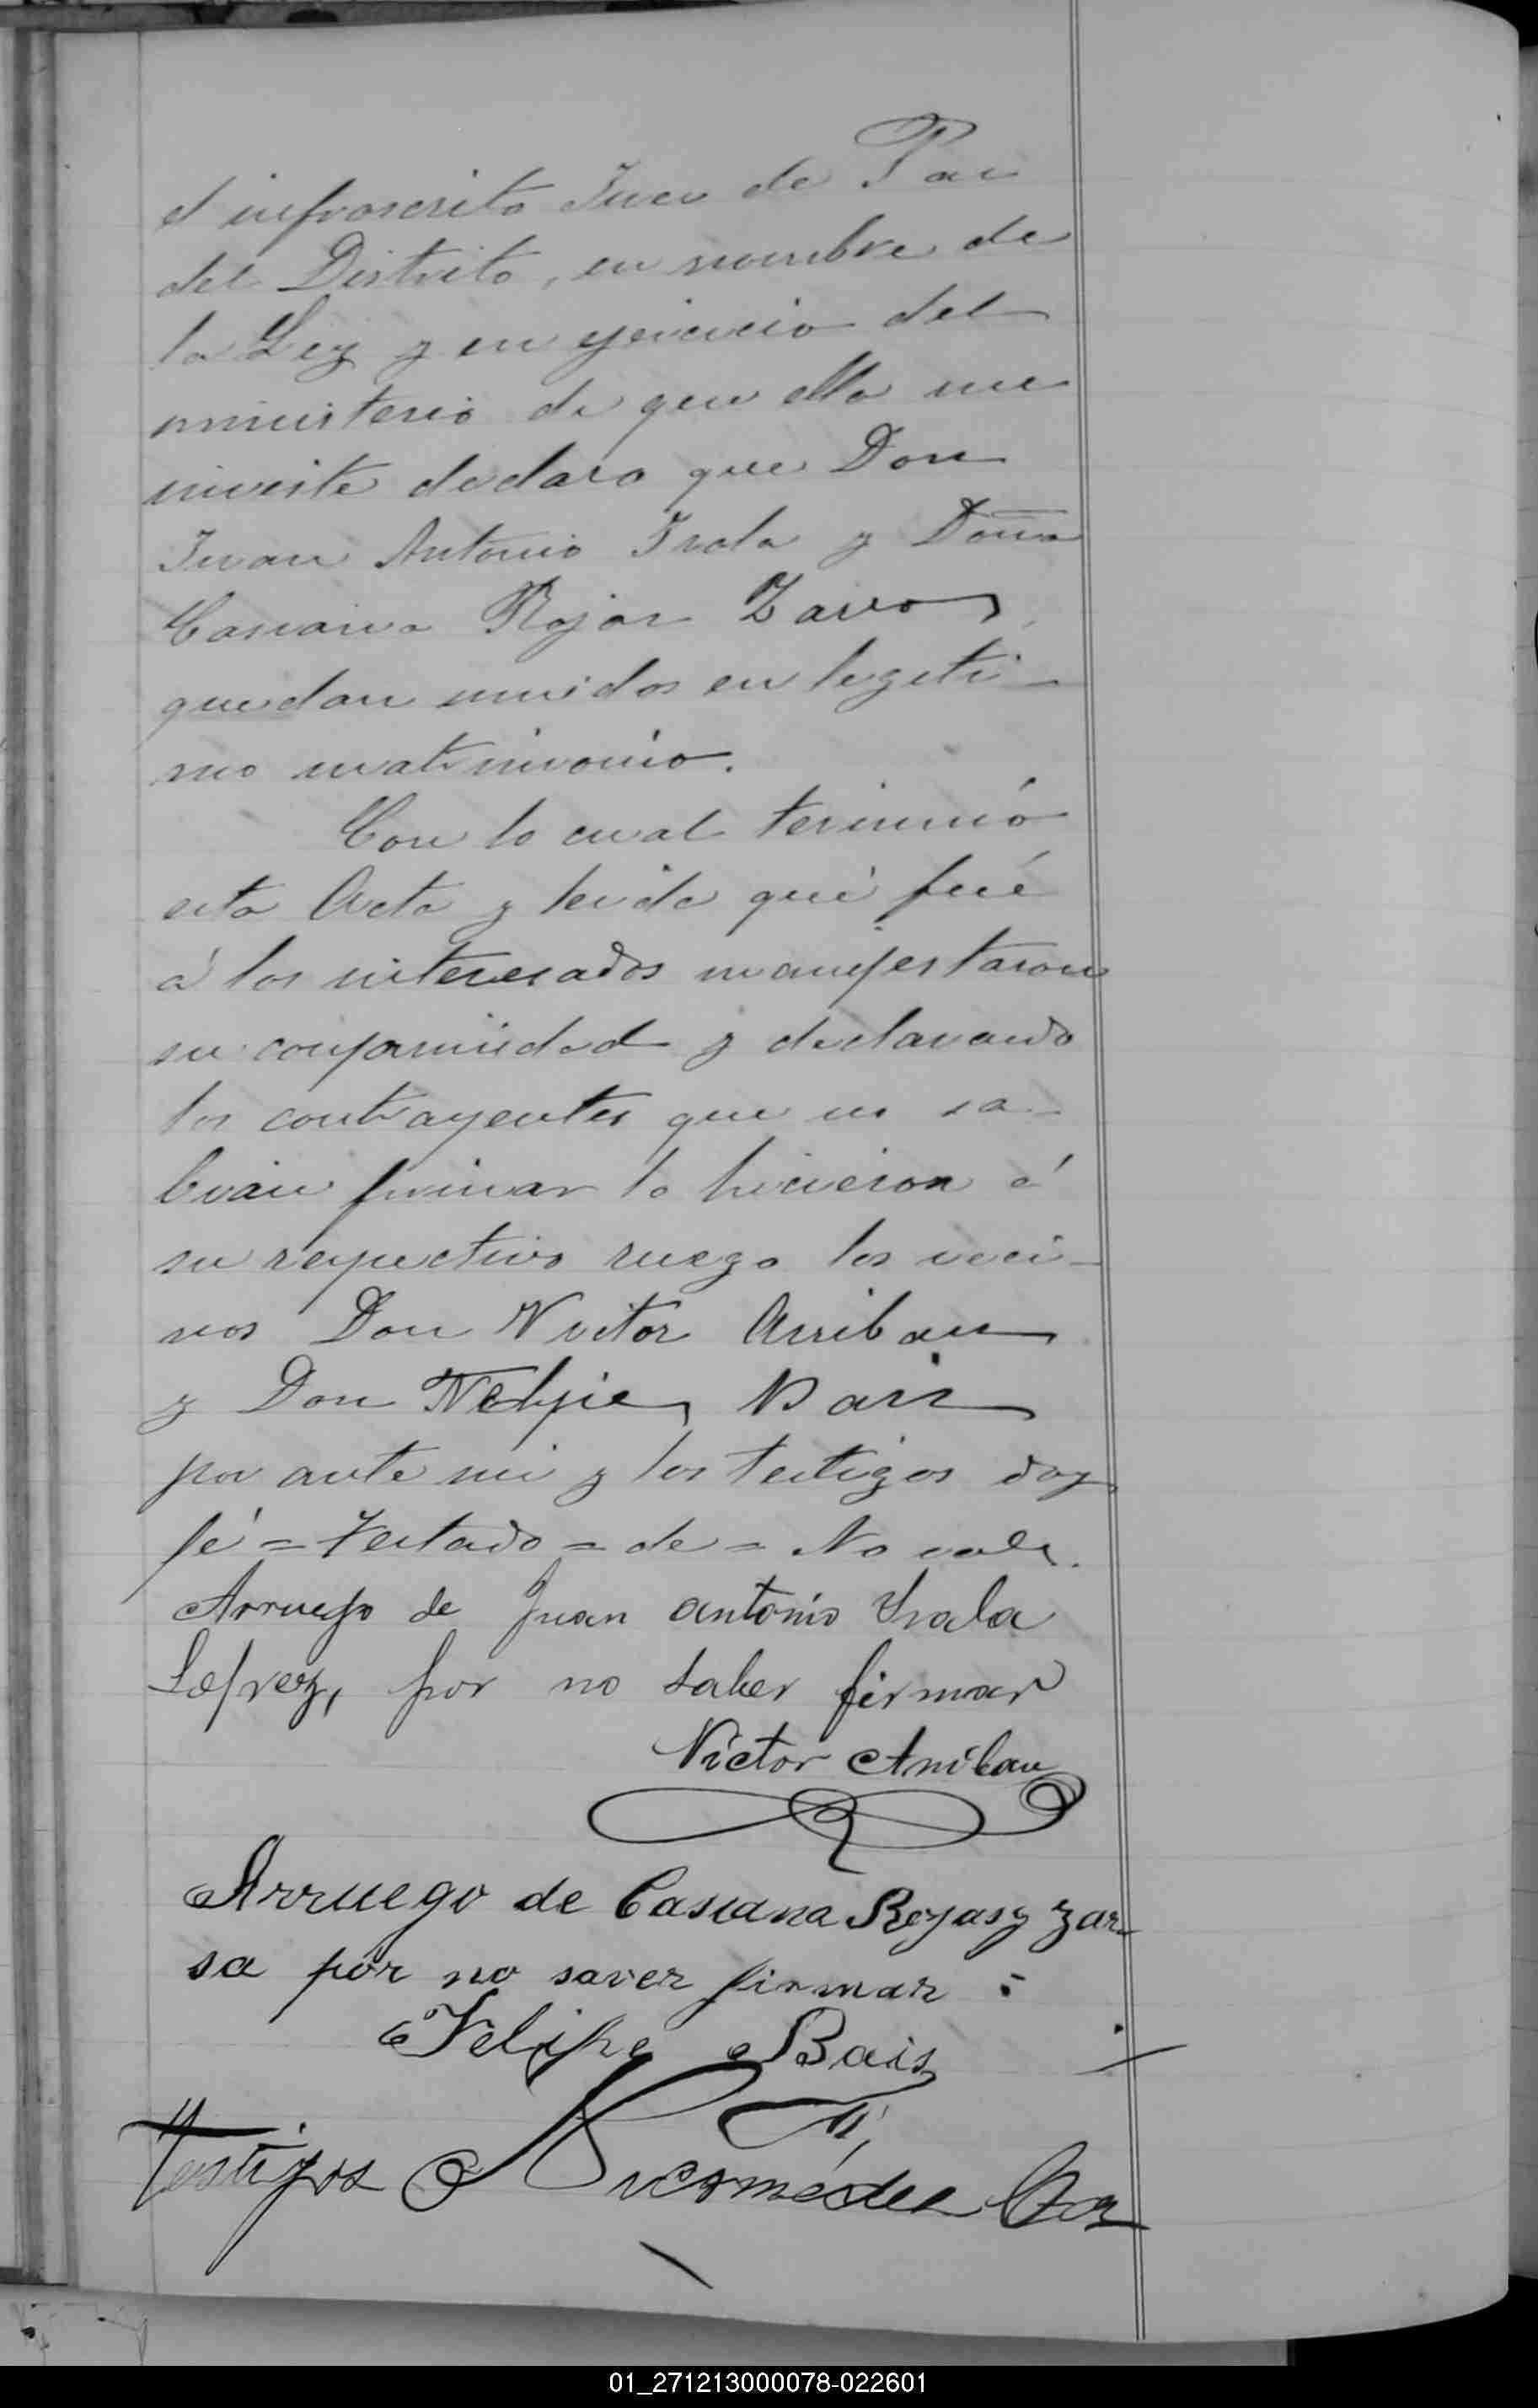 el infrascrito Juez de Paz
del Distrito, en nombre de
la Ley y en ejercicio del
ministerio de que ella me
inviste declaro que Don
Juan Antonio Irala y Doña
Casiana Rojas Zarza
quedan unidos en legiti-
mo matrimonio.
Con lo cual terminó
esta Acta y leida que fué
á los interesados manifestaron
su conformidad y declarando
los contrayentes que no sa-
bian firmar lo hicieron á
su respectivo ruego los veci-
nos Don Victor Anibau
y Don Felipe Bais
por ante mi y los testigos doy
fé = Testado = de = No vale.
Arruego de Juan Antonio Irala
Lopez, por no saber firmar
Victor Anibau
Arruego de Casiana Rojas y Zar-
sa por no saver firmar :
Felipe Bais
Testigos Nicomédes
01_271213000078-022601